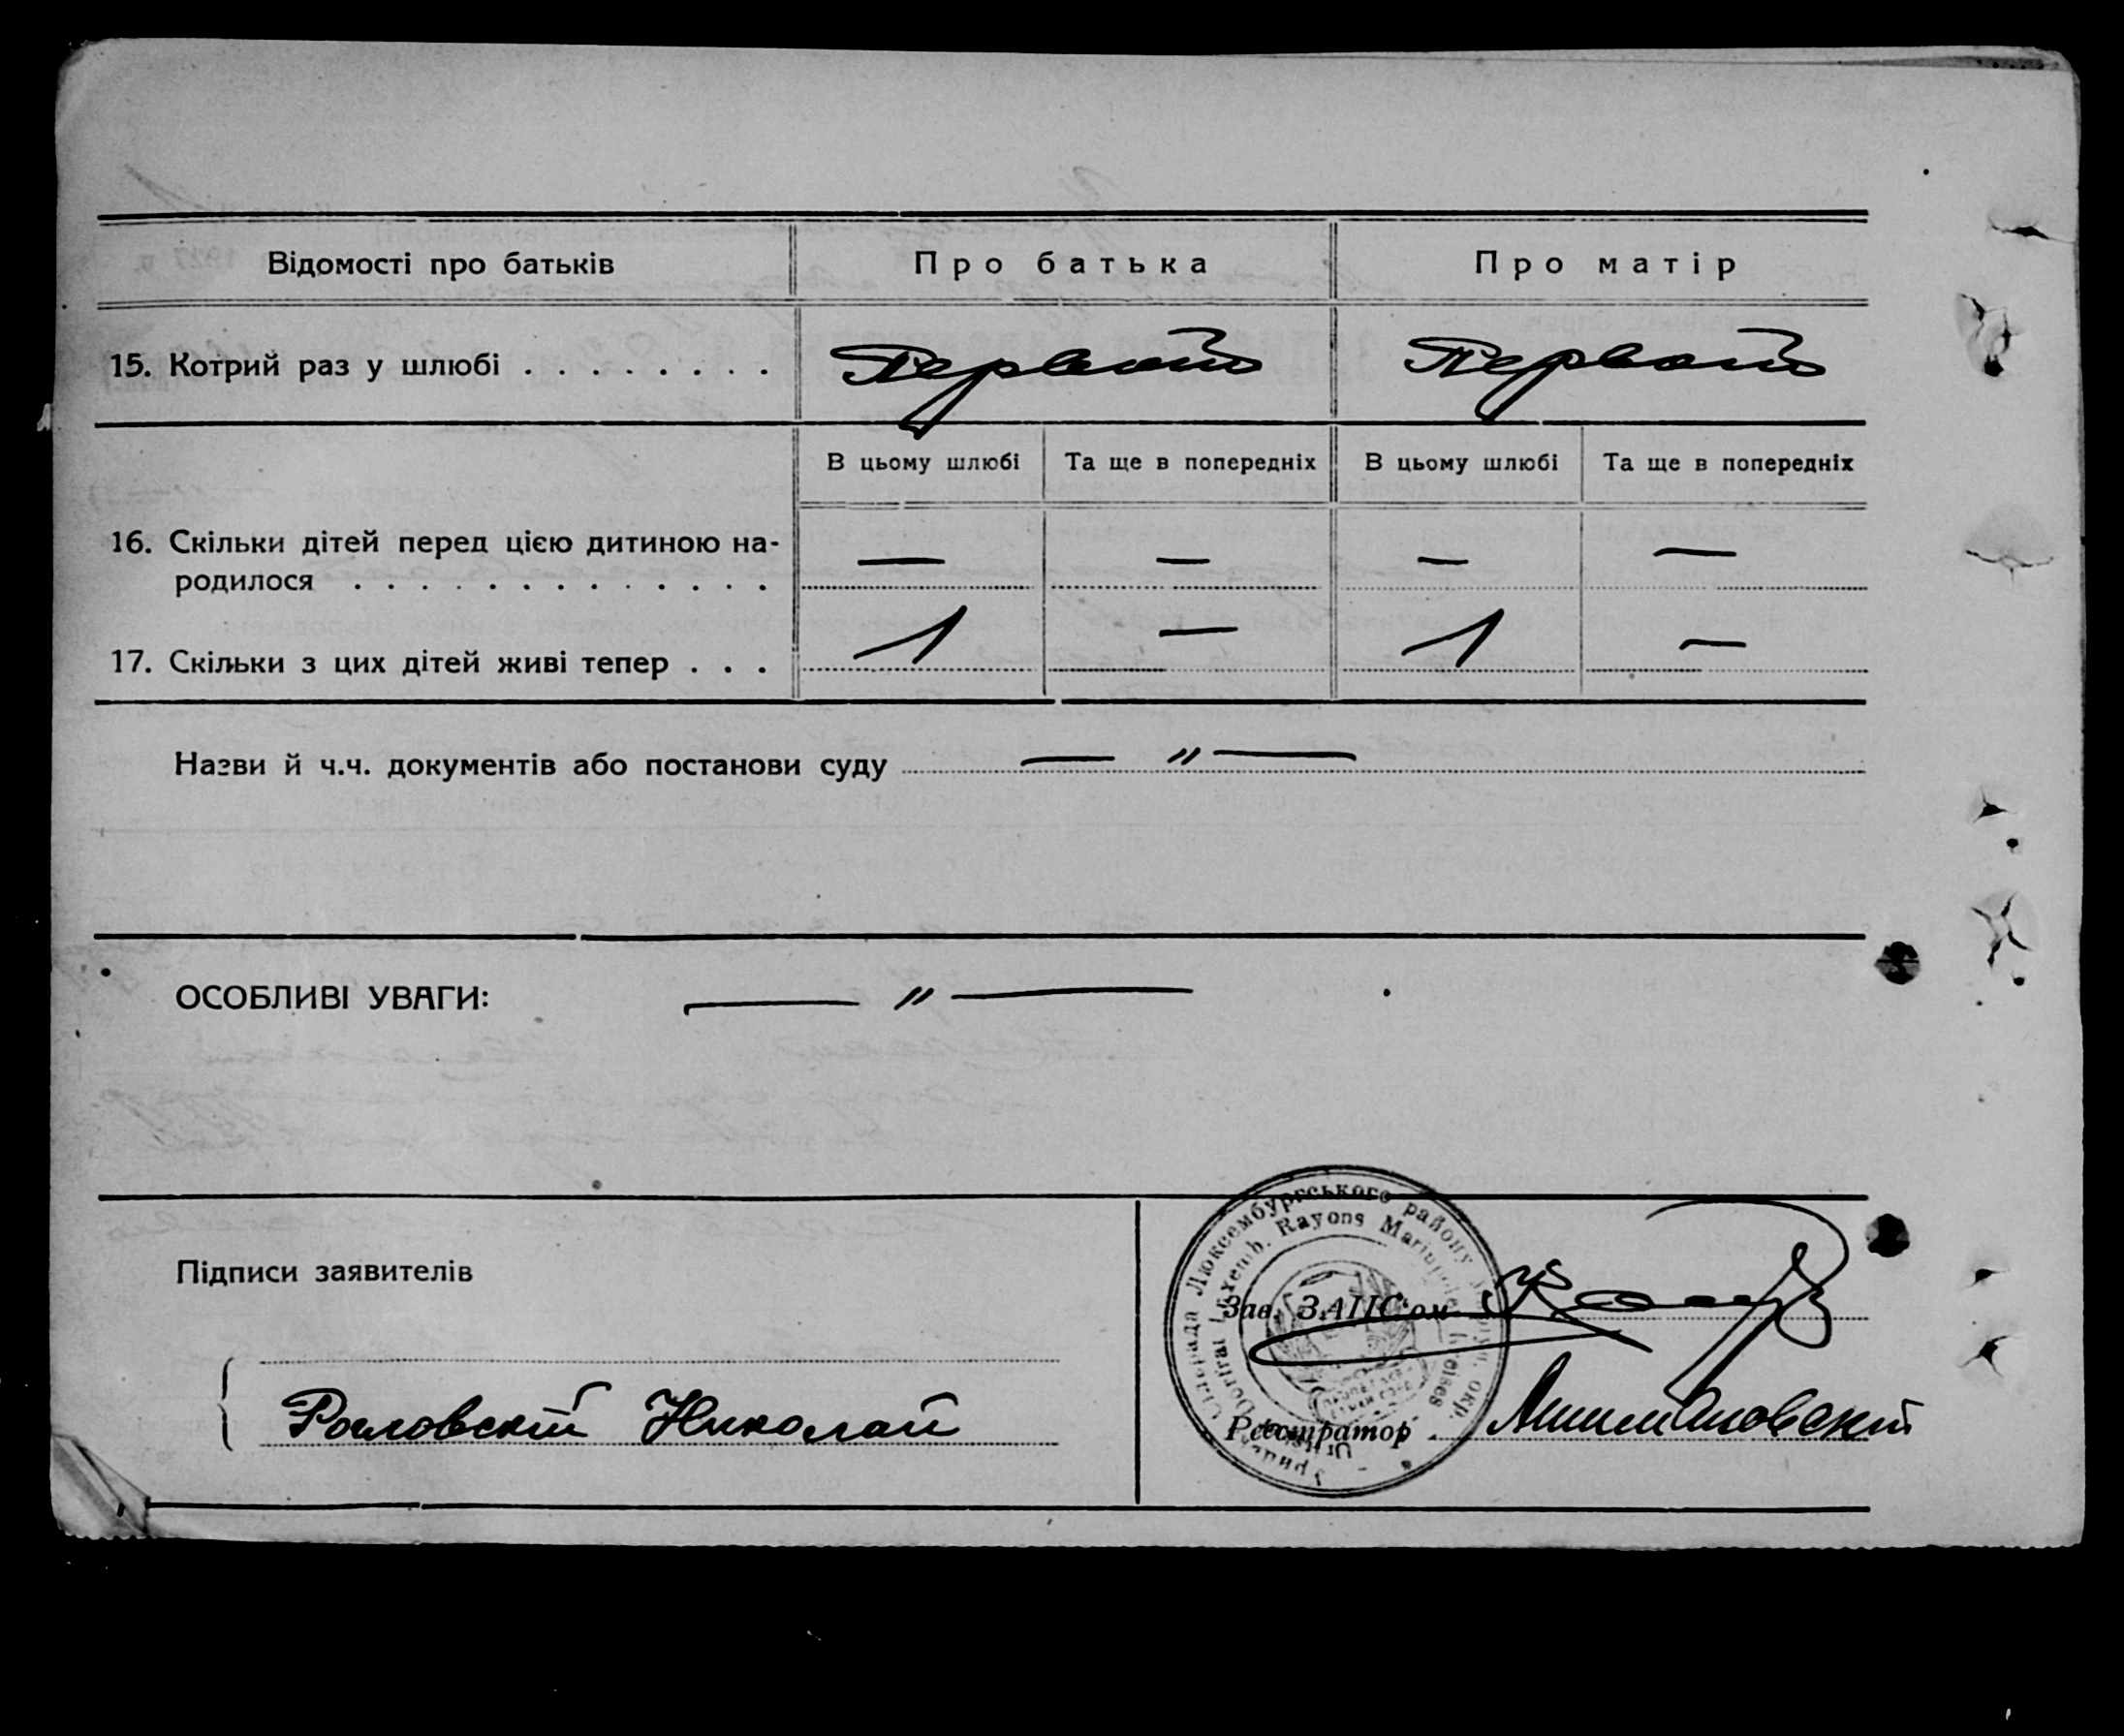 Відомості про батьків Про батька Про матір
15. Котрий раз у шлюбі . . . . . . . . Первый Первый
В цьому шлюбі Та ще в попередніх В цьому шлюбі Та ще в попередніх
16. Скільки дітей перед цією дитиною на-
родилося . . . . . . . . . . . . . — — — —
17. Скільки з цих дітей живі тепер . . . 1 — 1 —
Назви й ч.ч. документів або постанови суду — „ —
ОСОБЛИВІ УВАГИ: — „ —
Люксембургського району
Luxemb. Rayons Mariupoler Kreises
Підписи заявителів
Зав. ЗАГС'ом
Николай
Реєстратор